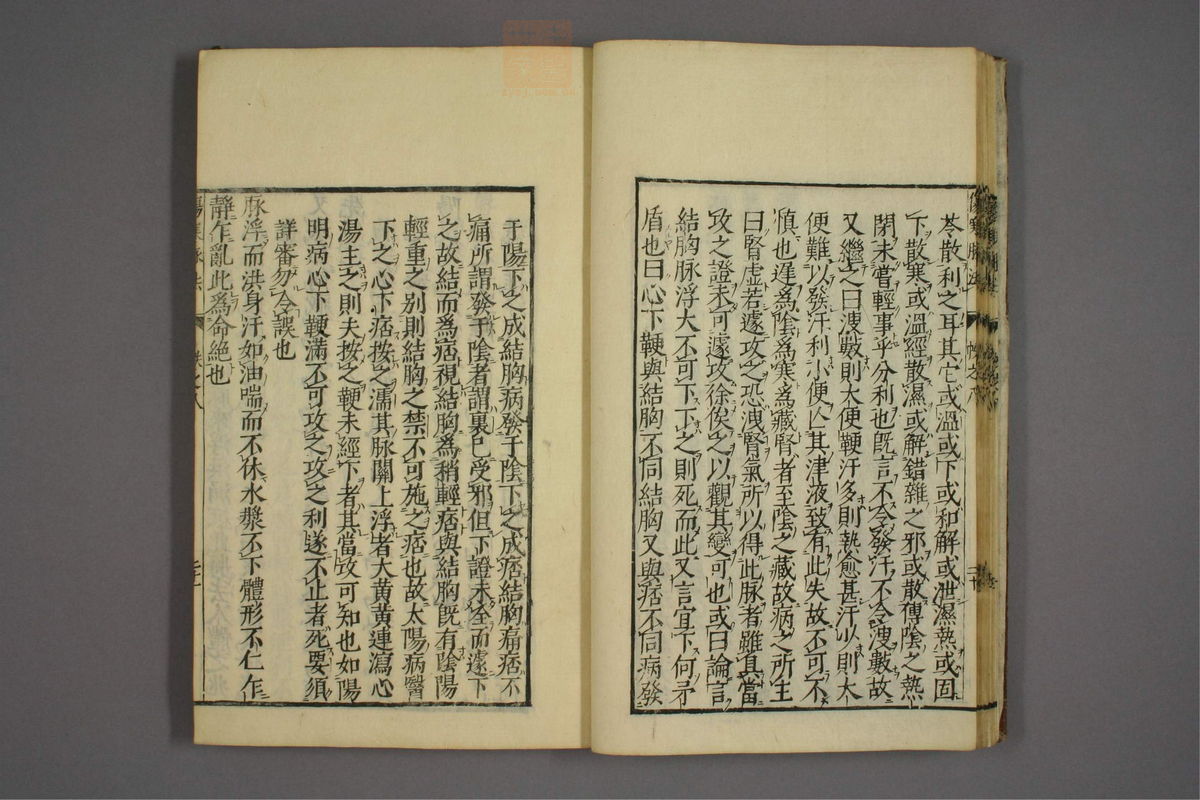 苓散利之耳其它或溫或下或和解或泄濕熱或固
下散寒或溫經散濕或解錯雜之邪或散傳陰之熱
閉未嘗輕事乎分利也旣言不令發汗不令溲數故
又繼之曰溲數則大便鞕汗多則熱愈甚汗以則大
便難以發汗利小便亾其津液致有此失故不可不
慎也遲爲陰爲寒爲藏腎者至陰之藏故病之所主
曰腎虛若遽攻之恐洩腎氣所以得此脉者雖宜當
攻之證未可遽攻徐俟之以觀其變可也或曰論言
結胸脉浮大不可下下之則死而此又言宜下何矛
盾也曰心下鞕與結胸不同結胸又與痞不同病發
于陽下之成結胸病發于陰下之成痞結胸痛痞不
痛所謂發于陰者謂裏已受邪但下證未全而遽下
之故結而爲痞視結胸爲稍輕痞與結胸旣有陰陽
輕重之别則結胸之禁不可施之痞也故太陽病醫
下之心下痞按之濡其脉關上浮者大黃黃連瀉心
湯主之則夫按之鞕未經下者其當攻可知也如陽
明病心下鞕滿不可攻之攻之利遂不止者死要須
詳審勿令誤也
脉浮而洪身汗如油喘而不休水漿不下體形不仁乍
靜乍亂此爲命絕也